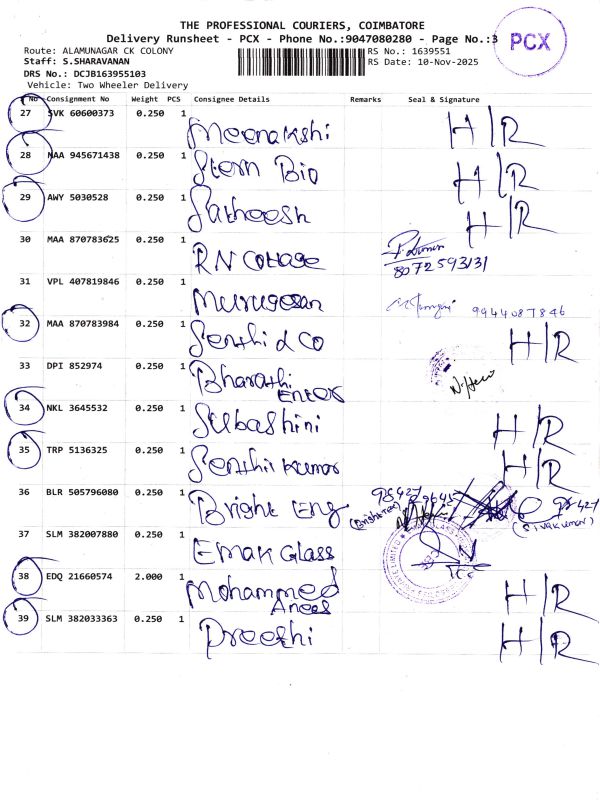 THE PROFESSIONAL COURIERS, COIMBATORE
Delivery Runsheet - PCX - Phone No.:9047080280 - Page No.:3
PCX
Route: ALAMUNAGAR CK COLONY
RS No.: 1639551
Staff: S.SHARAVANAN
RS Date: 10-Nov-2025
DRS No.: DCJB163955103
Vehicle: Two Wheeler Delivery
No Consignment No Weight PCS Consignee Details Remarks Seal & Signature
27 SVK 60600373 0.250 1 Meenakshi H/R
28 NAA 945671438 0.250 1 Stern Bio H/R
29 AWY 5030528 0.250 1 Satheesh H/R
30 MAA 870783625 0.250 1 RN Cottage
8072593131
31 VPL 407819846 0.250 1 Murugesan 9944087846
32 MAA 870783984 0.250 1 Senthil & CO H/R
33 DPI 852974 0.250 1 Bharathi
Enter
34 NKL 3645532 0.250 1 Subashini H/R
35 TRP 5136325 0.250 1 Senthil Kumar H/R
36 BLR 505796080 0.250 1 Bright Eng
(Sivakumar)
37 SLM 382007880 0.250 1 Emak Glass
38 EDQ 21660574 2.000 1 Mohammed
Anees H/R
39 SLM 382033363 0.250 1 Preethi H/R